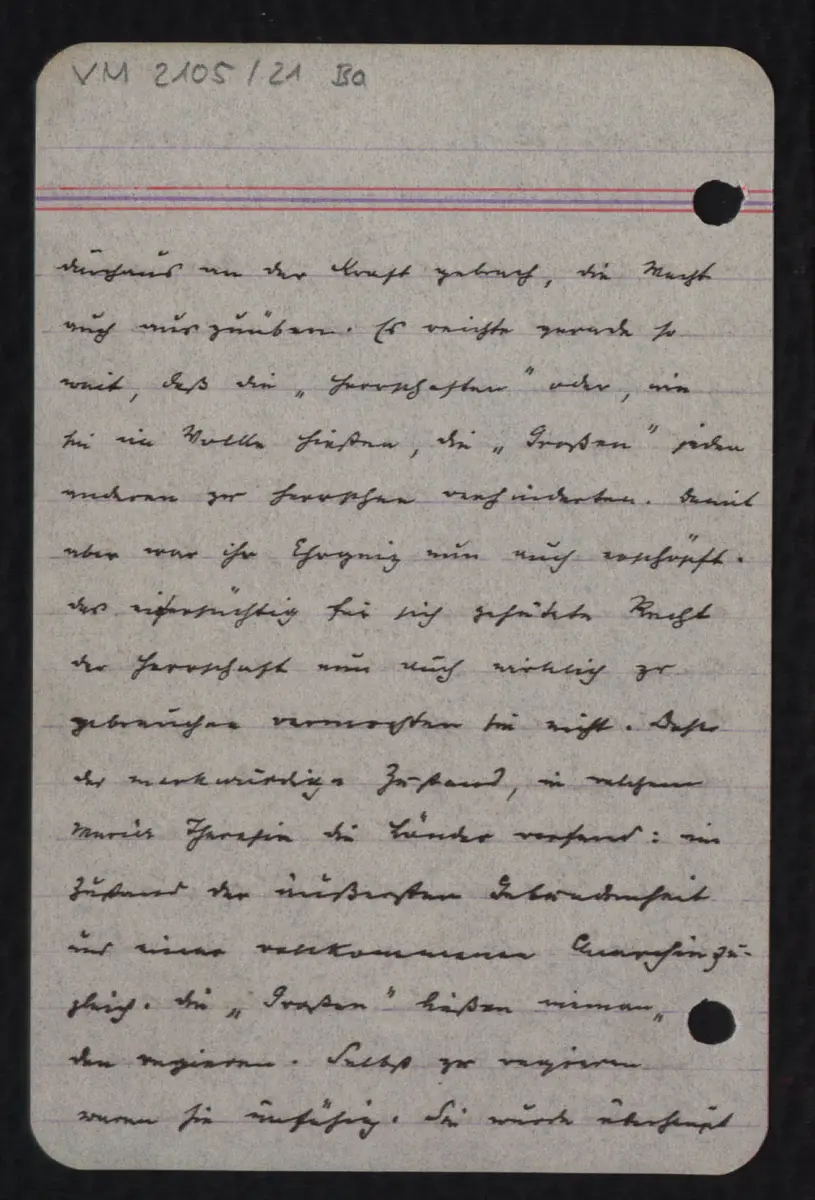 VM 2105/21 Ba
durchaus an der Kraft gebrach, die Macht
auch auszuüben. Es reichte gerade so
weit, daß die „Herrschaften" oder, wie
sie im Volke hießen, die „Großen" jeden
anderen zu herrschen verhinderten. Damit
aber war ihr Ehrgeiz nun auch erschöpft.
das eifersüchtig für sich gehütete Recht
der Herrschaft nun auch wirklich zu
gebrauchen vermochten sie nicht. Daher
der merkwürdige Zustand, in welchem
Maria Theresia die Länder vorfand: ein
Zustand der äußersten Gebundenheit
und einer vollkommenen Anarchie zu-
gleich. die „Großen" ließen nieman„
den regieren. Selbst zu regieren
waren sie unfähig. Sie wurde überhaupt